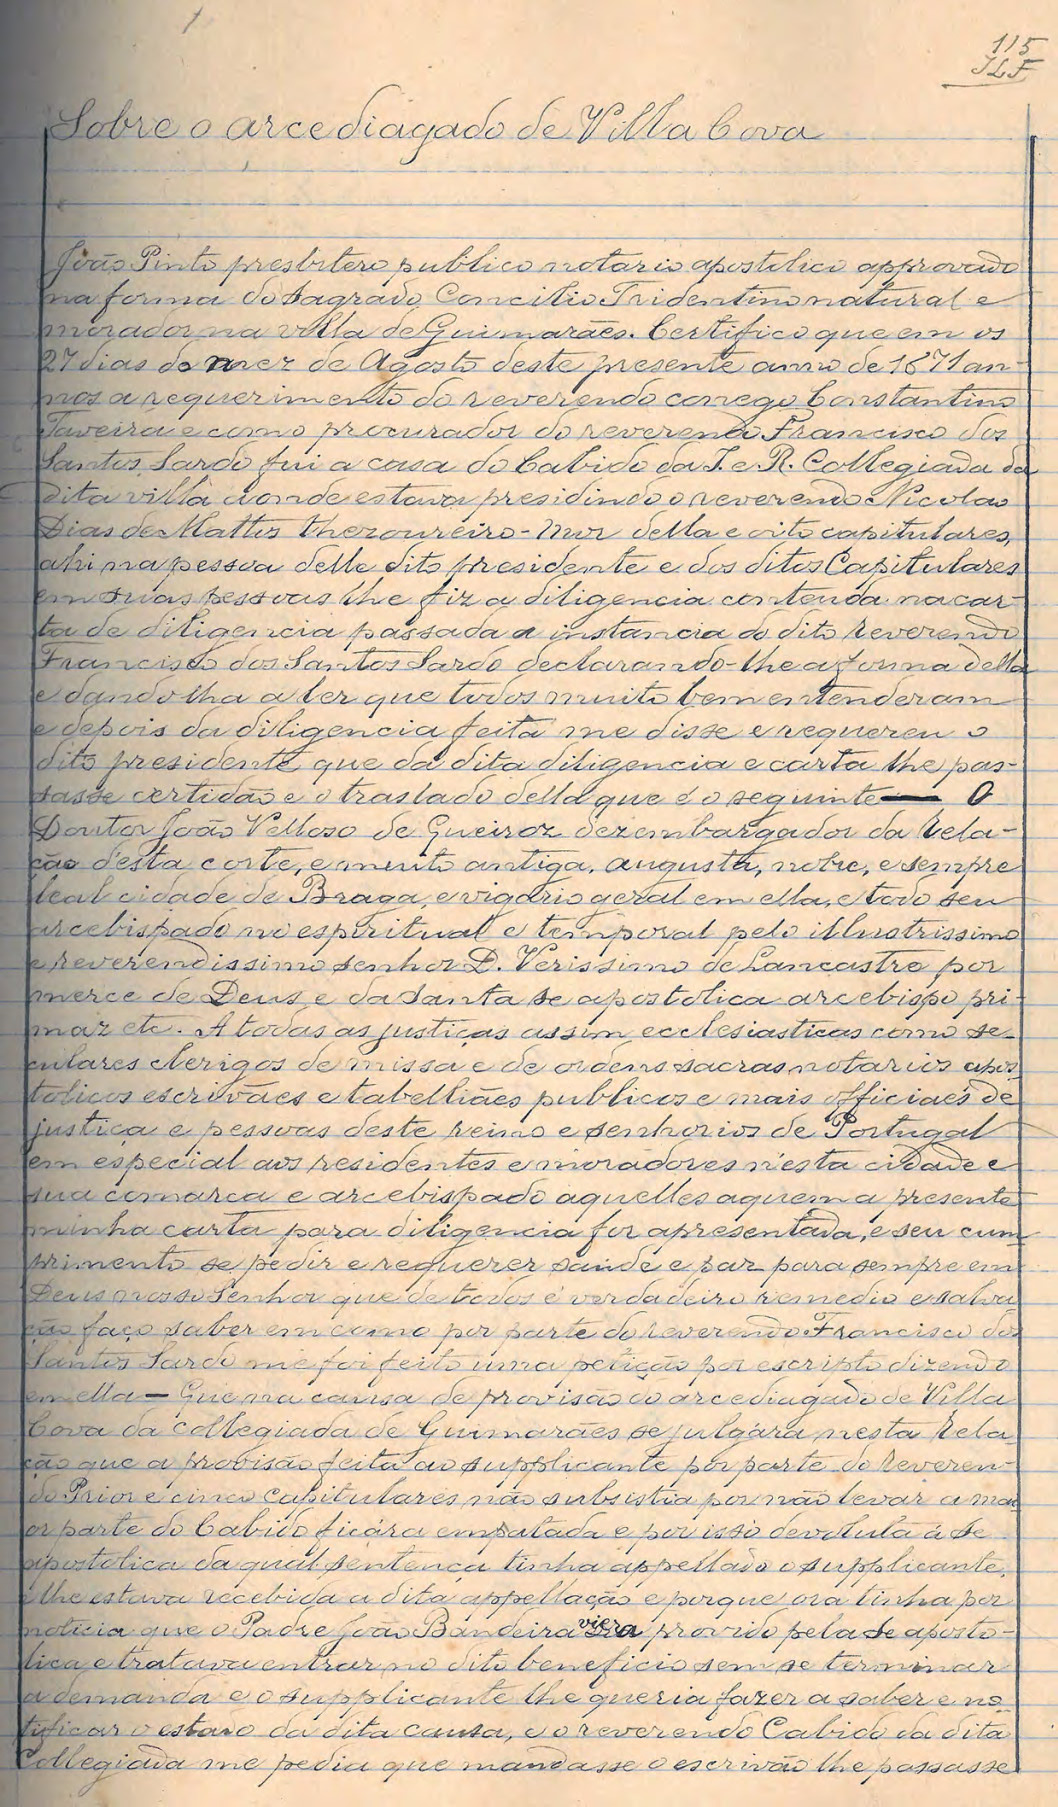 115
JLF
Sobre o arcediagado de Villa Cova
João Pinto presbitero publico notario apostolico approvado
na forma do sagrado Concilio Tridentino natural e
morador na villa de Guimarães. Certifico que em os
27 dias do mez de Agosto deste presente anno de 1671 an-
nos a requerimento do reverendo conego Constantino
Taveira e como procurador do reverendo Francisco dos
Santos Sardo fui a casa do Cabido da I. e R. Collegiada da
dita villa aonde estava presidindo o reverendo Nicolao
Dias de Mattos thezoureiro-mor della e oito capitulares,
ahi na pessoa delle dito presidente e dos ditos Capitulares
em suas pessoas lhe fiz a diligencia contenda na car-
ta de diligencia passada a instancia do dito reverendo
Francisco dos Santos Sardo declarando-lhe a forma della
e dando lha a ler que todos muito bem entenderam
e depois da diligencia feita me disse e requereu o
dito presidente que da dita diligencia e carta lhe pas-
sasse certidão e o traslado della que é o seguinte — O
Doutor João Velloso de Gueiroz dezembargador da Rela-
ção d'esta corte, e muito antiga, augusta, nobre, e sempre
leal cidade de Braga, e vigario geral em ella, e todo seu
arcebispado no espiritual e temporal pelo illustrissimo
e reverendissimo senhor D. Verissimo de Lancastro por
merce de Deus, e da santa se apostolica arcebispo pri-
maz etc. A todas as justiças assim ecclesiasticas como se-
culares clerigos de missa e de ordens sacras notarios apos-
tolicos escrivães e tabelliães publicos e mais officiaes de
justiça e pessoas deste reino e senhorios de Portugal
em especial aos residentes e moradores n'esta cidade e
sua comarca e arcebispado aquelles a quem a presente
minha carta para diligencia for apresentada, e seu cum
primento se pedir e requerer saude e paz para sempre em
Deus nosso Senhor que de todos é verdadeiro remedio e salva
ção faço saber em como por parte do reverendo Francisco dos
Santos Sardo me foi feito uma petição por escripto dizendo
em ella — Que na causa de provisão do arcediagado de Villa
Cova da collegiada de Guimarães se julgára nesta Rela
ção que a provisão feita ao supplicante por parte do Reveren-
do Prior e cinco capitulares não subsistia por não levar a mai
or parte do Cabido ficára empatada e por isso devoluta á se
apostolica da qual sentença tinha appellado o supplicante,
e lhe estava recebida a dita appellação e porque ora tinha por
noticia que o Padre João Bandeira viera provido pela se aposto-
lica e tratava entrar no dito beneficio sem se terminar
a demanda e o supplicante lhe queria fazer a saber e no
tificar o estado da dita causa, e o reverendo Cabido da dita
Collegiada me pedia que mandasse o escrivão lhe passasse